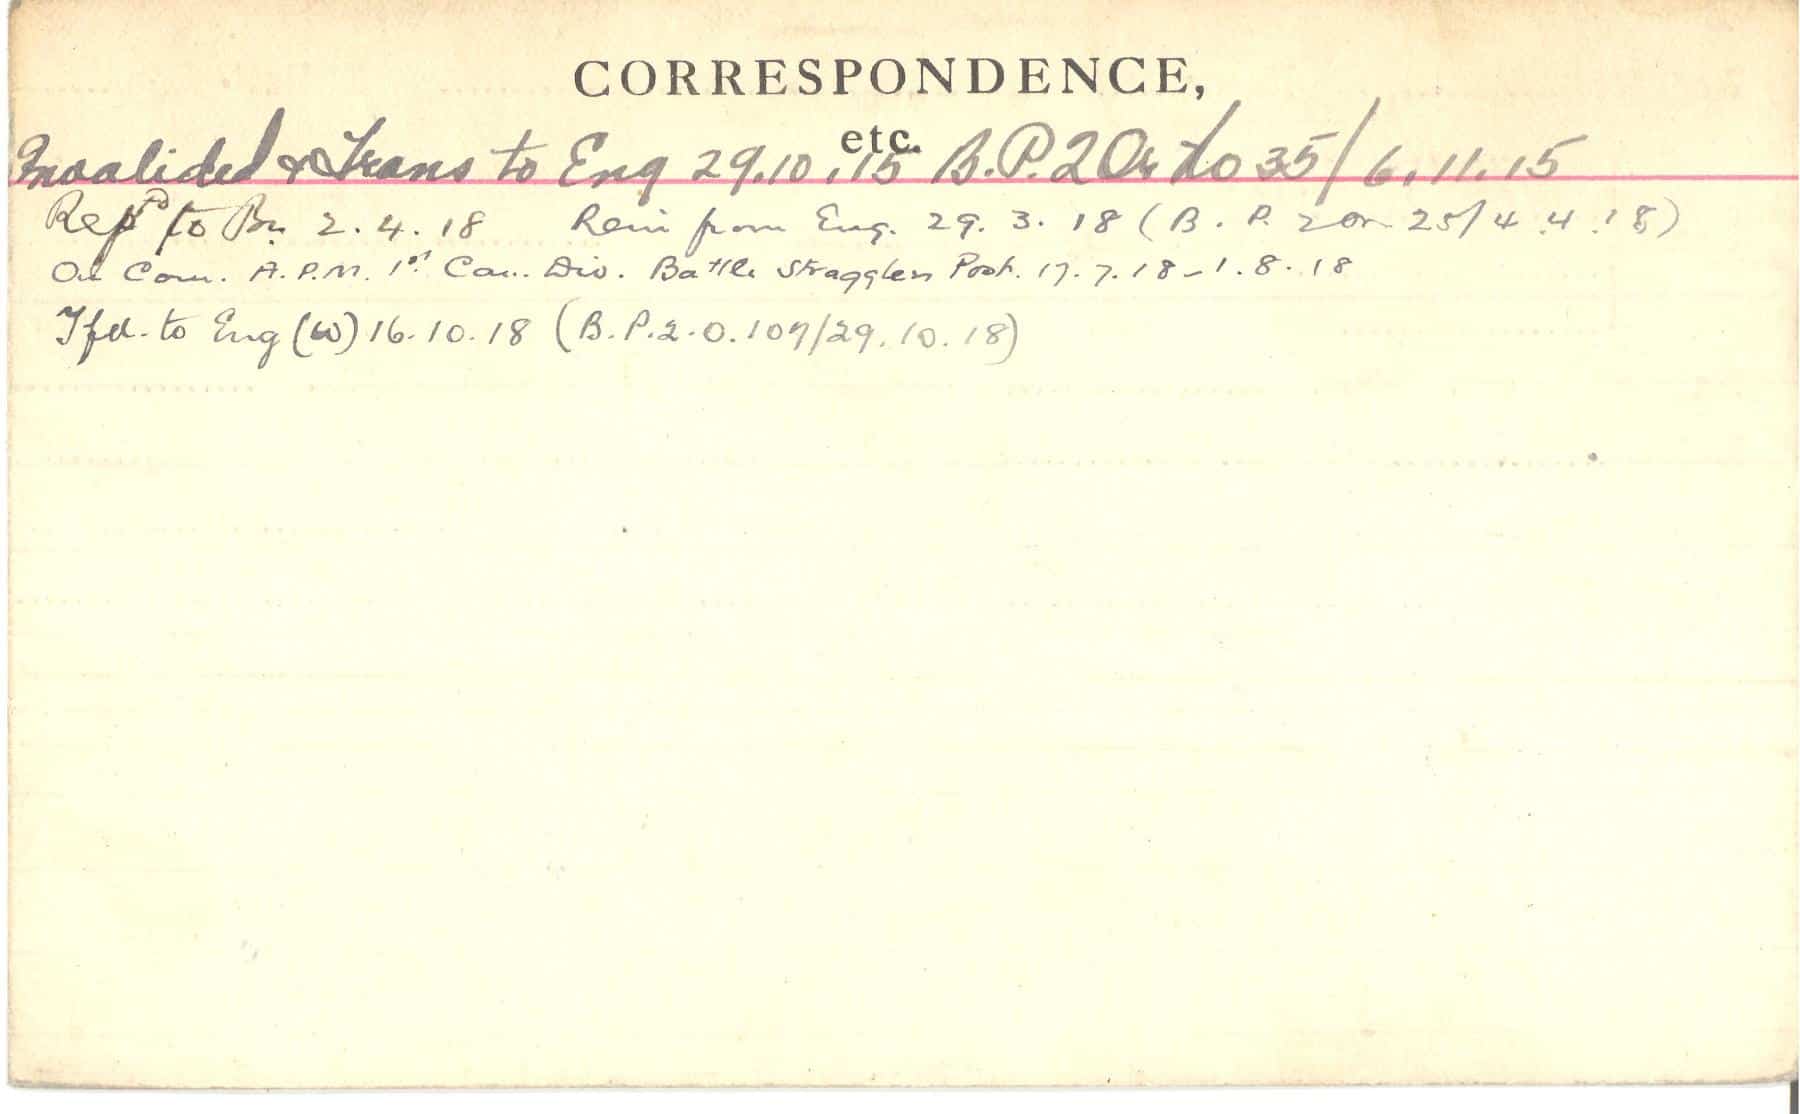 CORRESPONDENCE,
etc.
Invalided & Trans to Eng 29.10.15 B.P.2 Or No 35/6.11.15
Rep'd to Bn 2.4.18 Rein from Eng. 29.3.18 (B.P. 2 Or 25/4.4.18)
On Com. A.P.M. 1st Can. Div. Battle Stragglers Post. 17.7.18-1.8.18
Tfd. to Eng (W) 16.10.18 (B.P.2.O.107/29.10.18)